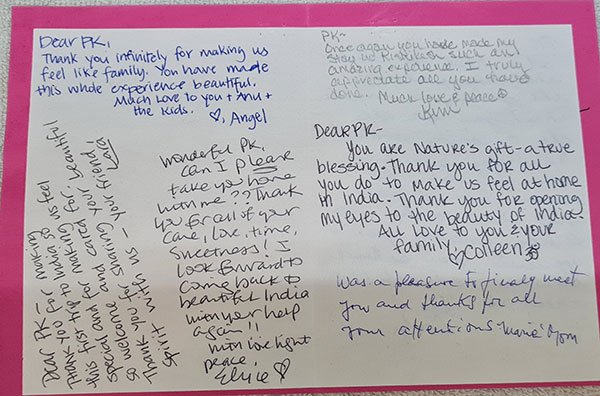 Dear PK,
Thank you infinitely for making us
feel like family. You have made
this whole experience beautiful.
Much Love to you + Anu +
the Kids.
♡, Angel
PK-
Once again you have made my
stay in Rishikesh such an
amazing experience. I truly
appreciate all you have
done. Much love & peace
Kim
Dear PK-
You are Nature's gift-a true
blessing. Thank you for all
you do to make us feel at home
in India. Thank you for opening
my eyes to the beauty of India.
All love to you & your
family, ♡ Colleen ॐ
Dear PK-
Thank you for making
this first trip to India so
special and for making us feel
so welcome and cared for. beautiful
Thank you for sharing your
spirit with us - your friend,
Lara
Wonderful PK,
can I please
take you home
with me?? Thank
you for all of your
care, love, time,
sweetness! I
look forward to
come back to
beautiful India
with your help
again!!
with love light
peace,
♡
Was a pleasure to finaly meet
you and thanks for all
your attentions "Marie" Mom